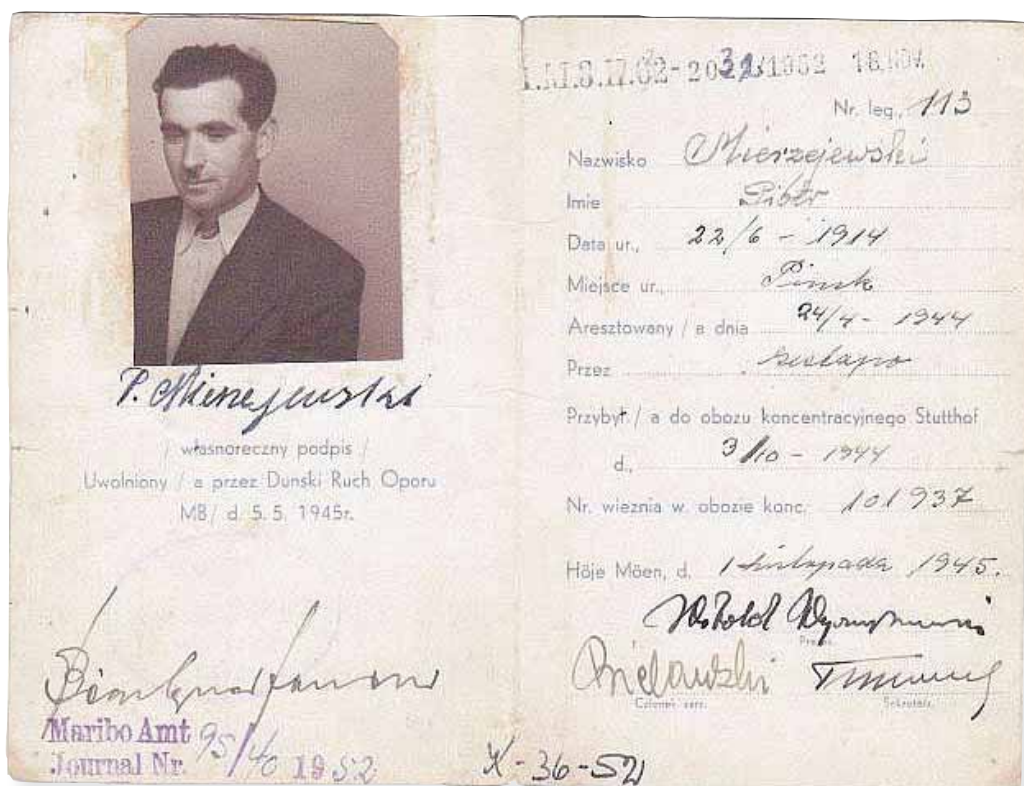 P. Mierzejewski
/ własnoreczny podpis /
Uwolniony / a przez Dunski Ruch Oporu
MB/ d. 5.5. 1945r.
Maribo Amt
Journal Nr. 95/40 1952
X-36-52
18 NOV.
Nr. leg., 113
Nazwisko Mierzejewski
Imie Piotr
Data ur., 22/6 - 1914
Miejsce ur., Pinsk
Aresztowany / a dnia 24/4 - 1944
Przez Gestapo
Przybył / a do obozu koncentracyjnego Stutthof
d., 3/10 - 1944
Nr. wieznia w. obozie konc. 101937
Höje Möen, d. 1 Listopada 1945.
Witold
Prezes
Bielawski
Członek zarz. Sekretarz.